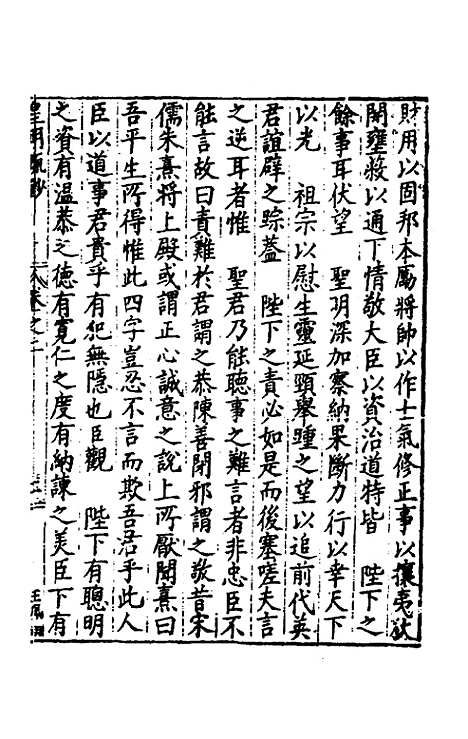 財用以固邦本勵將帥以作士氣修正事以攘夷狄
開壅蔽以通下情敬大臣以資治道特皆　陛下之
餘事耳伏望　聖明深加察納果斷力行以幸天下
以光　祖宗以慰生靈延頸舉踵之望以追前代英
君誼辟之踪蓋　陛下之責必如是而後塞嗟夫言
之逆耳者惟　聖君乃能聽事之難言者非忠臣不
能言故曰責難於君謂之恭陳善閉邪謂之敬昔宋
儒朱熹將上殿或謂正心誠意之說上所厭聞熹曰
吾平生所得惟此四字豈忍不言而欺吾君乎此人
臣以道事君貴乎有犯無隱也臣觀　陛下有聰明
之資有溫恭之德有寬仁之度有納諫之美臣下有
皇明疏鈔
卷之二